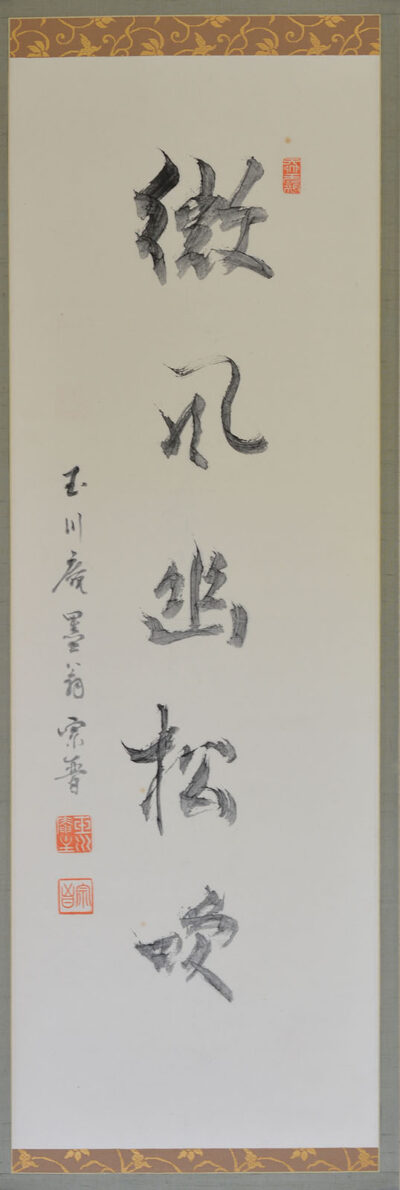 微風幽松吹
玉川庵墨翁宗